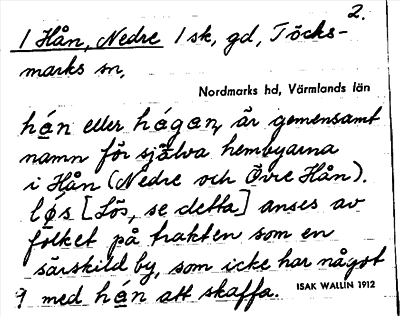 2.
1 Hån, Nedre 1 sk, gd, Töcks-
marks sn,
Nordmarks hd, Värmlands län
hán eller hágan, är gemensamt
namn för själva hembyarna
i Hån (Nedre och Övre Hån).
lǿs [Lös, se detta] anses av
folket på trakten som en
särskild by, som icke har något
med hán att skaffa.
ISAK WALLIN 1912